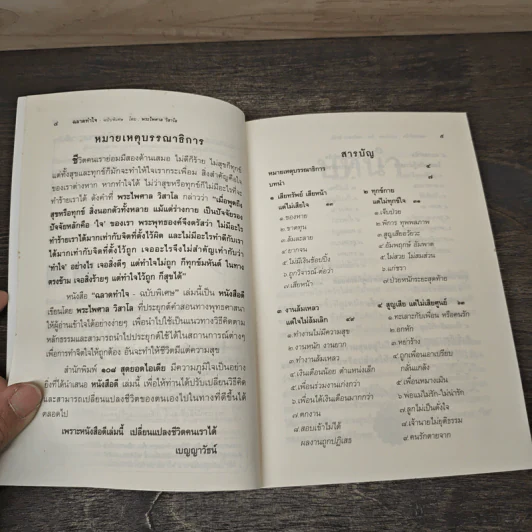 ๔ ฉลาดทำใจ - ฉบับพิเศษ โดย : พระไพศาล วิสาโล
หมายเหตุบรรณาธิการ
ชีวิตคนเราย่อมมีสองด้านเสมอ ไม่ดีก็ร้าย ไม่สุขก็ทุกข์
แต่ทั้งสุขและทุกข์ก็มักจะทำให้ใจเรากระเพื่อม สิ่งสำคัญคือใจ
ของเราต่างหาก หากทำใจได้ ไม่ว่าสุขหรือทุกข์ก็ไม่มีอะไรที่จะ
ทำร้ายเราได้ ดังคำที่ พระไพศาล วิสาโล กล่าวว่า "เมื่อพูดถึง
สุขหรือทุกข์ สิ่งนอกตัวทั้งหลาย แม้แต่ร่างกาย เป็นปัจจัยรอง
ปัจจัยหลักคือ 'ใจ' ของเรา พระพุทธองค์จึงตรัสว่า ไม่มีอะไร
ทำร้ายเราได้มากเท่ากับจิตที่ตั้งไว้ผิด และไม่มีอะไรทำดีกับเรา
ได้มากเท่ากับจิตที่ตั้งไว้ถูก เจออะไรจึงไม่สำคัญเท่ากับว่า
'ทำใจ' อย่างไร เจอสิ่งดีๆ แต่ทำใจไม่ถูก ก็ทุกข์มหันต์ ในทาง
ตรงข้าม เจอสิ่งร้ายๆ แต่ทำใจไว้ถูก ก็สุขได้"
หนังสือ "ฉลาดทำใจ - ฉบับพิเศษ" เล่มนี้เป็น หนังสือดี
เขียนโดย พระไพศาล วิสาโล ที่ประยุกต์คำสอนทางพุทธศาสนา
ให้ผู้อ่านเข้าใจได้อย่างง่ายๆ เพื่อนำไปใช้เป็นแนวทางวิธีคิดตาม
หลักธรรมและสามารถนำไปประยุกต์ใช้ได้ในสถานการณ์ต่างๆ
เพื่อการทำจิตใจให้ถูกต้อง อันจะทำให้ชีวิตมีแต่ความสุข
สำนักพิมพ์ ๑๐๘ สุดยอดไอเดีย มีความภูมิใจเป็นอย่าง
ยิ่งที่ได้นำเสนอ หนังสือดี เล่มนี้ เพื่อให้ท่านได้ปรับเปลี่ยนวิธีคิด
และสามารถเปลี่ยนแปลงชีวิตของตนเองไปในทางที่ดีขึ้นได้
ตลอดไป
เพราะหนังสือดีเล่มนี้ เปลี่ยนแปลงชีวิตคนเราได้
เบญญาวัธน์
๕
สารบัญ
หมายเหตุบรรณาธิการ ๔
บทนำ ๗
๑ เสียทรัพย์ เสียหน้า
แต่ไม่เสียใจ
๑.ของหาย
๒.ขาดทุน
๓.ล้มละลาย
๔.ยากจน
๕.ไม่มีเงินช้อปปิ้ง
๖.ถูกวิจารณ์-ต่อว่า
๗.เสียหน้า
๒ ทุกข์กาย
แต่ไม่ทุกข์ใจ
๑.เจ็บป่วย
๒.พิการ ทุพพลภาพ
๓.สูญเสียอวัยวะ
๔.อัมพฤกษ์ อัมพาต
๕.ไม่สวย ไม่สมส่วน
๖.แก่ชรา
๗.ป่วยหนักระยะสุดท้าย
๓ งานล้มเหลว
แต่ใจไม่ล้มเลิก
๑.ทำงานไม่มีความสุข
๒.งานหนัก งานยาก
๓.ทำงานล้มเหลว
๔.เงินเดือนน้อย ตำแหน่งเล็ก
๕.เพื่อนร่วมงานเก่งกว่า
๖.เพื่อนได้เงินเดือนมากกว่า
๗.ตกงาน
๘.สอบเข้าไม่ได้
ผลงานถูกปฏิเสธ
๔ สูญเสีย แต่ไม่เสียศูนย์ ๖๑
๑.ทะเลาะกับเพื่อน หรือคนรัก
๒.อกหัก
๓.หย่าร้าง
๔.ถูกเพื่อนเอาเปรียบ
กลั่นแกล้ง
๕.เพื่อนหมางเมิน
๖.พ่อแม่ไม่รัก-ไม่น่ารัก
๗.ลูกไม่เป็นดั่งใจ
๘.เจ้านายไม่ยุติธรรม
๙.คนรักตายจาก